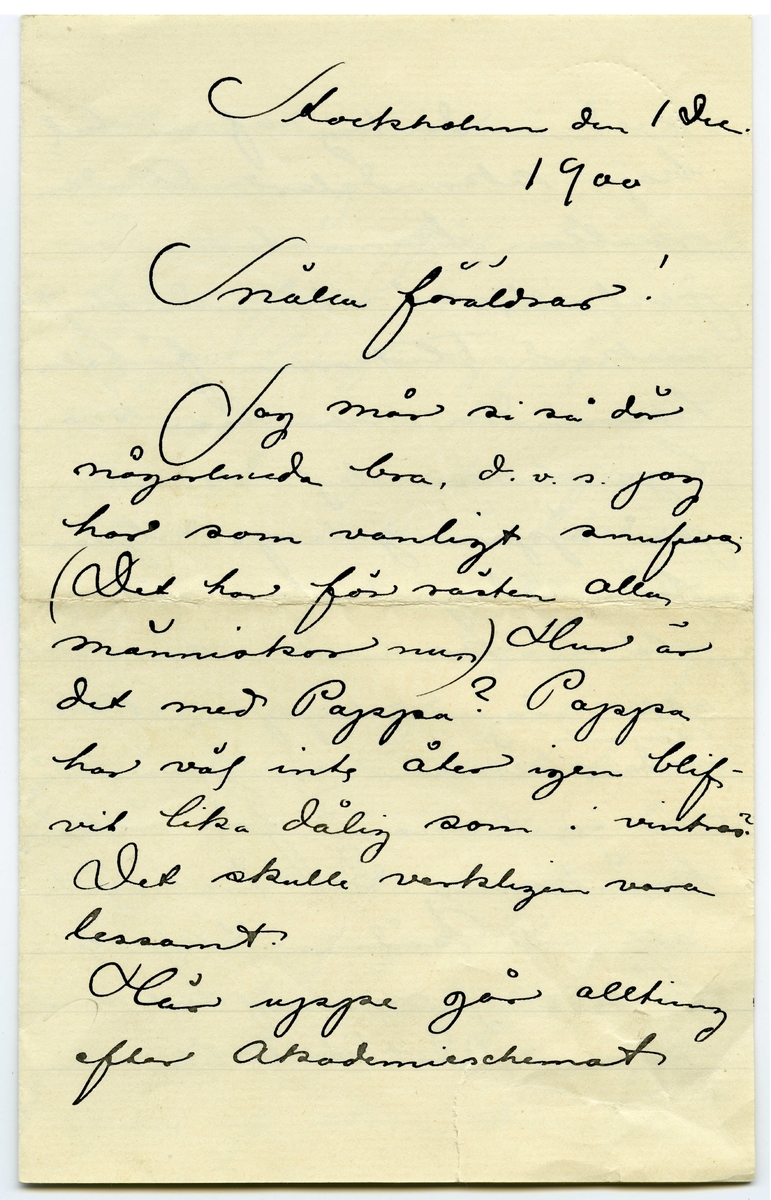 Stockholm den 1 Dec.
1900
Snälla föräldrar!
Jag mår si så där
någorlunda bra, d.v.s. jag
har som vanligt snufva,
(Det har för rästen alla
människor nu) Hur är
det med Pappa? Pappa
har väl inte åter igen blif-
vit lika dålig som i vintras?
Det skulle verkligen vara
lessamt.
Här uppe går allting
efter Akademieschemat